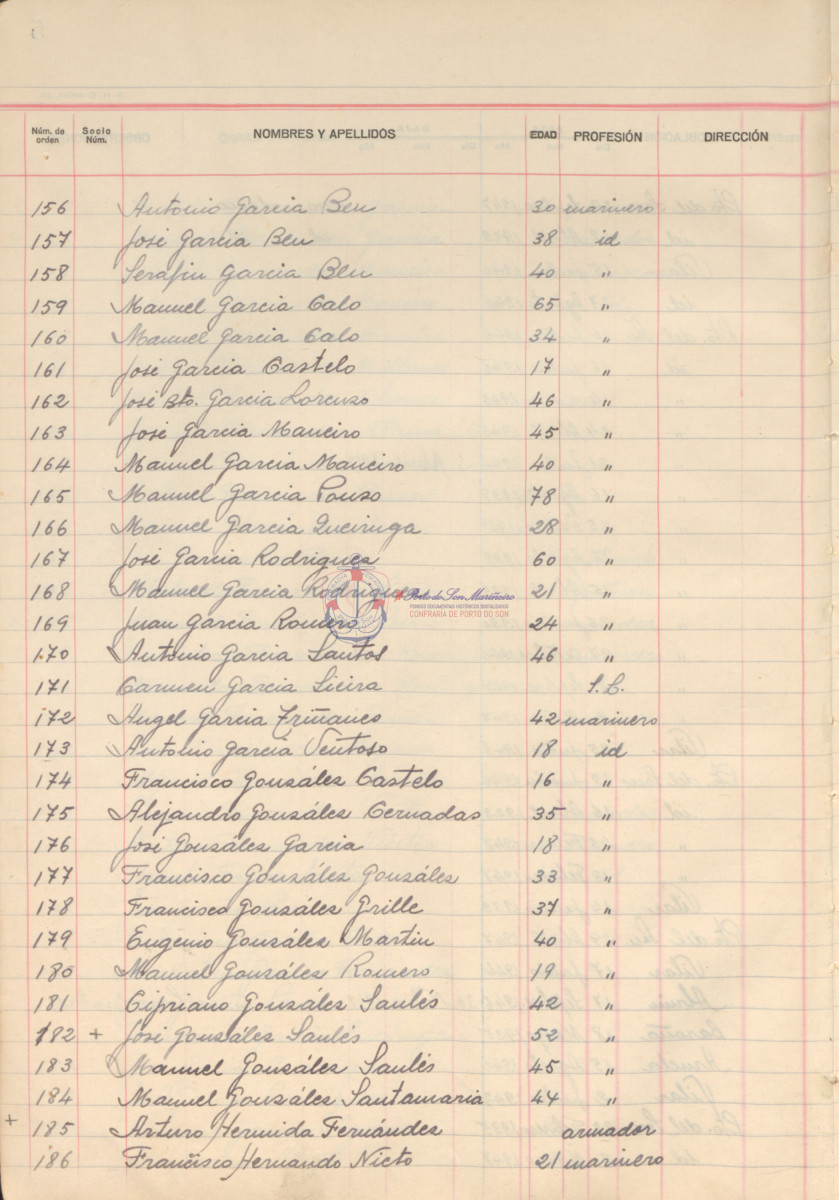 Núm. de orden Socio Núm. NOMBRES Y APELLIDOS EDAD PROFESIÓN DIRECCIÓN
156 Antonio Garcia Ben 30 marinero
157 José Garcia Ben 38 id
158 Serafin Garcia Ben 40 "
159 Manuel Garcia Calo 65 "
160 Manuel Garcia Calo 34 "
161 José Garcia Castelo 17 "
162 José Bto. Garcia Lorenzo 46 "
163 José Garcia Maneiro 45 "
164 Manuel Garcia Maneiro 40 "
165 Manuel Garcia Pouso 78 "
166 Manuel Garcia Queiruga 28 "
167 José Garcia Rodrigues 60 "
168 Manuel Garcia Rodrigues 21 "
Porto do Son Mariñeiro
FONDOS DOCUMENTAIS HISTÓRICOS DIXITALIZADOS
CONFRARIA DE PORTO DO SON
169 Juan Garcia Romero 24 "
170 Antonio Garcia Santos 46 "
171 Carmen Garcia Sieira S.L.
172 Angel Garcia 42 marinero
173 Antonio Garcia Ventoso 18 id
174 Francisco Gonsáles Castelo 16 "
175 Alejandro Gonsáles Cernadas 35 "
176 José Gonsáles Garcia 18 "
177 Francisco Gonsáles Gonsáles 33 "
178 Francisco Gonsáles Grille 37 "
179 Eugenio Gonsáles Martin 40 "
180 Manuel Gonsáles Romero 19 "
181 Cipriano Gonsáles Saulés 42 "
182 + José Gonsáles Saulés 52 "
183 Manuel Gonsáles Saulés 45 "
184 Manuel Gonsáles Santamaria 44 "
+ 185 Arturo Hermida Fernándes armador
186 Francisco Hernando Nieto 21 marinero